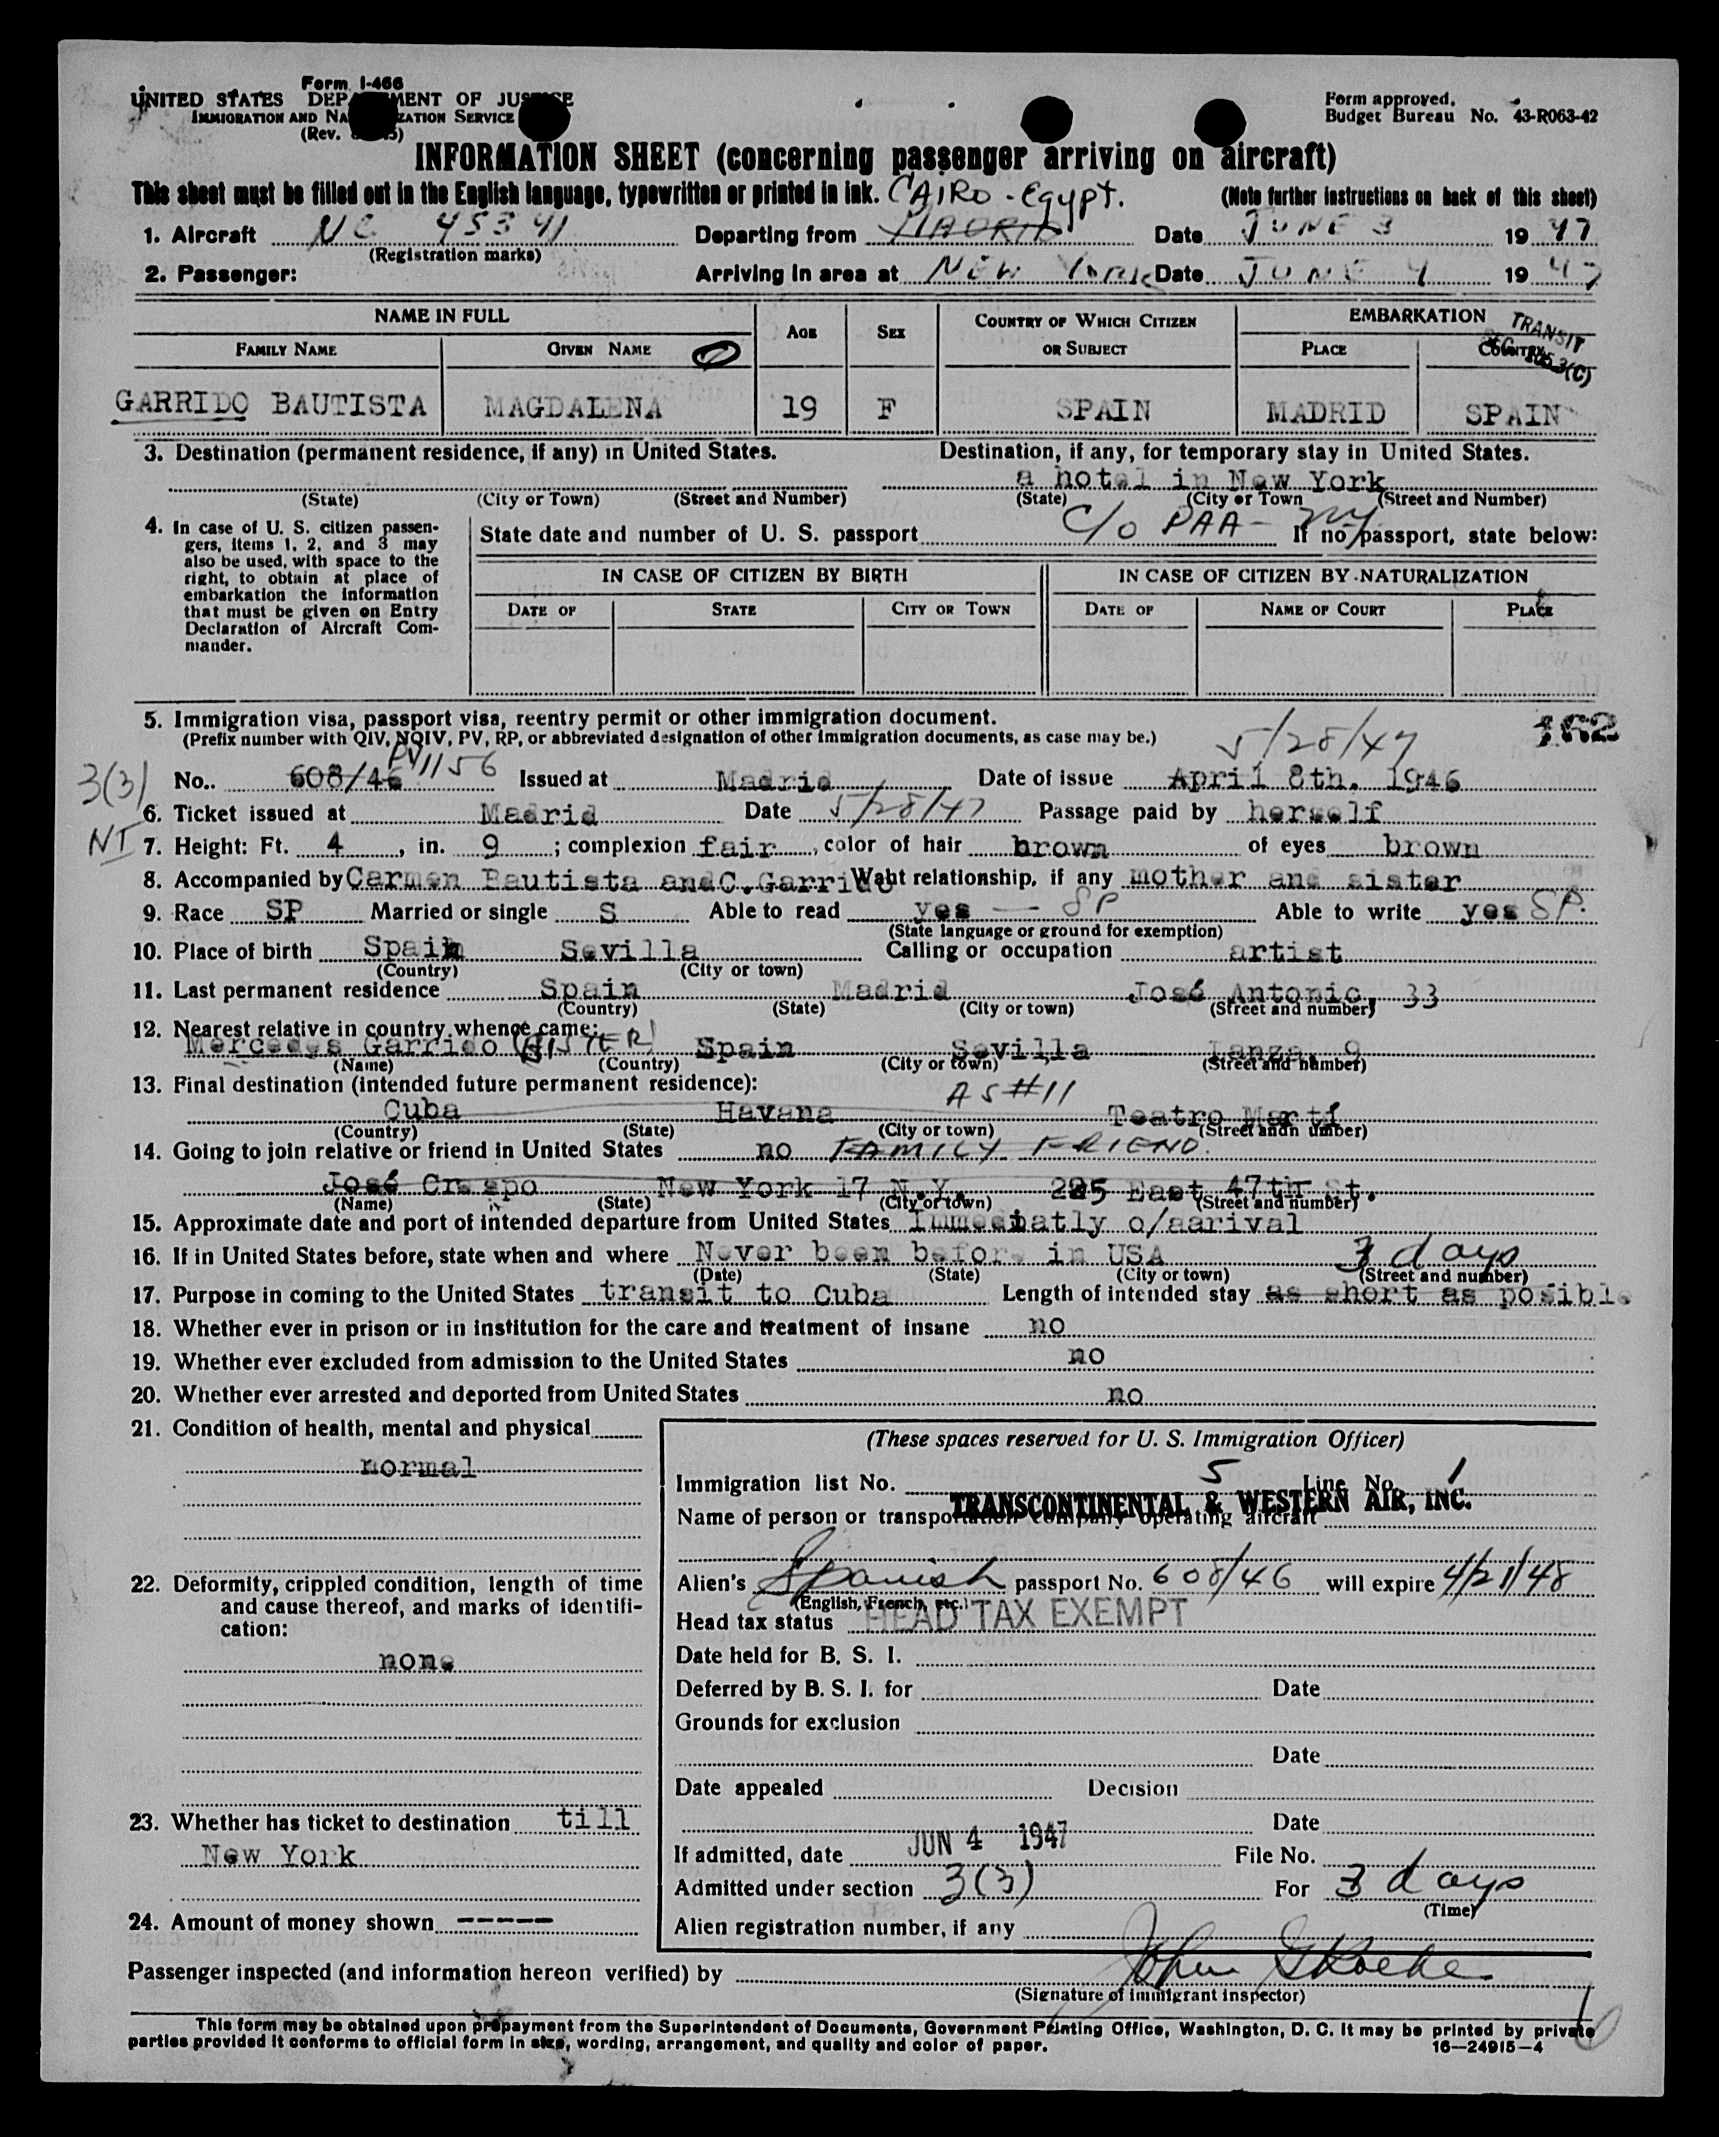 Form I-466
UNITED STATES DEPARTMENT OF JUSTICE
IMMIGRATION AND NATURALIZATION SERVICE
(Rev.
Form approved.
Budget Bureau No. 43-R063-42
INFORMATION SHEET (concerning passenger arriving on aircraft)
This sheet must be filled out in the English language, typewritten or printed in ink. CAIRO - Egypt. (Note further instructions on back of this sheet)
1. Aircraft NC 45341 Departing from MADRID Date JUNE 3 1947
(Registration marks)
2. Passenger: Arriving in area at NEW YORK Date JUNE 4 1947
NAME IN FULL AGE SEX COUNTRY OF WHICH CITIZEN OR SUBJECT EMBARKATION TRANSIT
FAMILY NAME GIVEN NAME PLACE COUNTRY 3(C)
GARRIDO BAUTISTA MAGDALENA 19 F SPAIN MADRID SPAIN
3. Destination (permanent residence, if any) in United States. Destination, if any, for temporary stay in United States.
a hotel in New York
(State) (City or Town) (Street and Number) (State) (City or Town (Street and Number)
4. In case of U. S. citizen passengers, items 1, 2, and 3 may also be used, with space to the right, to obtain at place of embarkation the information that must be given on Entry Declaration of Aircraft Commander.
State date and number of U. S. passport C/O PAA - NY If no passport, state below:
IN CASE OF CITIZEN BY BIRTH IN CASE OF CITIZEN BY NATURALIZATION
DATE OF STATE CITY OR TOWN DATE OF NAME OF COURT PLACE
5. Immigration visa, passport visa, reentry permit or other immigration document. 162
(Prefix number with QIV, NQIV, PV, RP, or abbreviated designation of other immigration documents, as case may be.) 5/28/47
3(3) No. 608/46 PV1156 Issued at Madrid Date of issue April 8th. 1946
6. Ticket issued at Madrid Date 5/28/47 Passage paid by herself
NI 7. Height: Ft. 4, in. 9; complexion fair, color of hair brown of eyes brown
8. Accompanied by Carmen Bautista and C. Garrido Waht relationship, if any mother and sister
9. Race SP Married or single S Able to read yes — SP Able to write yes SP.
(State language or ground for exemption)
10. Place of birth Spain Sevilla Calling or occupation artist
(Country) (City or town)
11. Last permanent residence Spain Madrid José Antonio, 33
(Country) (State) (City or town) (Street and number)
12. Nearest relative in country whence came:
Mercedes Garrido (SISTER) Spain Sevilla Lanza, 9
(Name) (Country) (City or town) (Street and number)
13. Final destination (intended future permanent residence): AS #11
Cuba Havana Teatro Martí
(Country) (State) (City or town) (Street andn umber)
14. Going to join relative or friend in United States no FAMILY FRIEND.
José Crespo New York 17 N.Y. 225 East 47th St.
(Name) (State) (City or town) (Street and number)
15. Approximate date and port of intended departure from United States Immediatly o/aarival
16. If in United States before, state when and where Never been before in USA 3 days
(Date) (State) (City or town) (Street and number)
17. Purpose in coming to the United States transit to Cuba Length of intended stay as short as posible
18. Whether ever in prison or in institution for the care and treatment of insane no
19. Whether ever excluded from admission to the United States no
20. Whether ever arrested and deported from United States no
21. Condition of health, mental and physical
normal
22. Deformity, crippled condition, length of time and cause thereof, and marks of identification:
none
23. Whether has ticket to destination till
New York
24. Amount of money shown -----
(These spaces reserved for U. S. Immigration Officer)
Immigration list No. 5 Line No. 1
TRANSCONTINENTAL & WESTERN AIR, INC.
Name of person or transportation company operating aircraft
Alien's Spanish passport No. 608/46 will expire 4/21/48
(English, French, etc.)
Head tax status HEAD TAX EXEMPT
Date held for B. S. I.
Deferred by B. S. I. for Date
Grounds for exclusion
Date
Date appealed Decision
Date
If admitted, date JUN 4 1947 File No.
Admitted under section 3(3) For 3 days
(Time)
Alien registration number, if any
Passenger inspected (and information hereon verified) by John G Roche
(Signature of immigrant inspector)
This form may be obtained upon prepayment from the Superintendent of Documents, Government Printing Office, Washington, D. C. It may be printed by private
parties provided it conforms to official form in size, wording, arrangement, and quality and color of paper. 16—24915-4